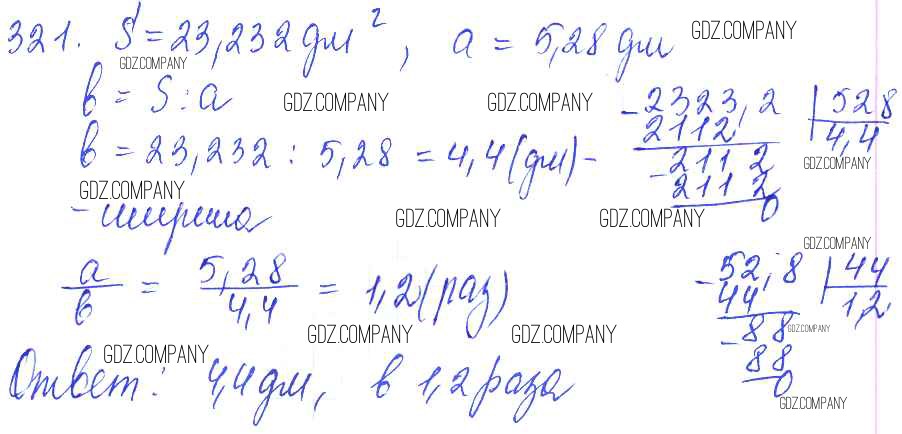 321. S = 23,232 дм², a = 5,28 дм GDZ.COMPANY
GDZ.COMPANY
b = S : a GDZ.COMPANY GDZ.COMPANY
b = 23,232 : 5,28 = 4,4 (дм) -
GDZ.COMPANY
- ширина GDZ.COMPANY GDZ.COMPANY
- 2323,2 | 528
2112 4,4
GDZ.COMPANY
- 2112
2112
0
a/b = 5,28/4,4 = 1,2 (раз)
GDZ.COMPANY
- 52,8 | 44
44 1,2
- 88 GDZ.COMPANY
88
0
GDZ.COMPANY GDZ.COMPANY GDZ.COMPANY
Ответ: 4,4 дм, в 1,2 раза
GDZ.COMPANY